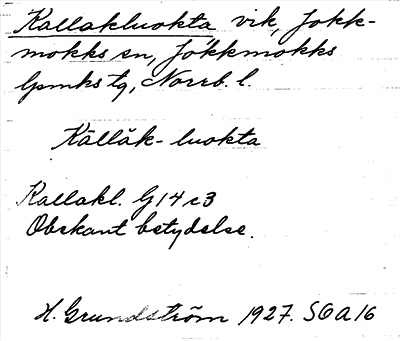 Kallakluokta vik, Jokk-
mokks sn, Jokkmokks
lpmks tg, Norrb. l.
Kāllăk-luokta
Kallakl. G14 c3
Obekant betydelse.
H. Grundström 1927. SOA16